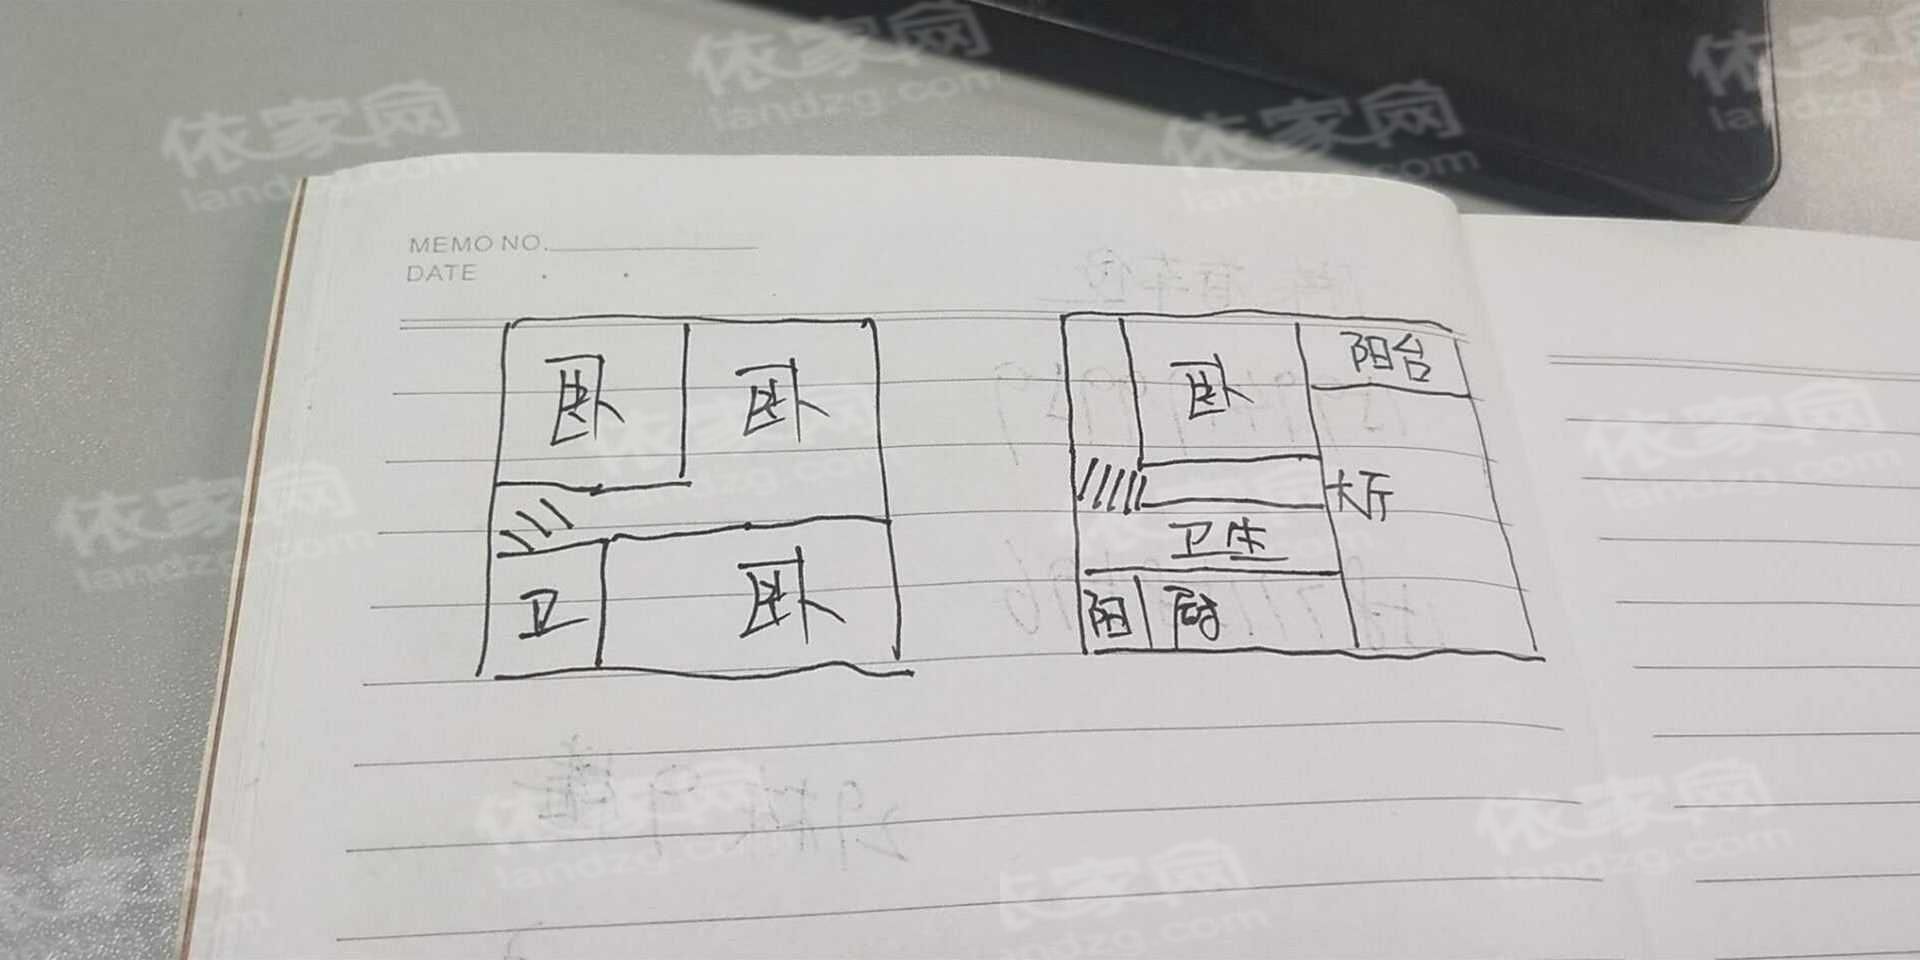 MEMO NO.
DATE
卧 卧
卫 卧
卧 阳台
大厅
卫生
阳 厨
依家网
landzg.com
依家网
landzg.com
依家网
landzg.com
依家网
landzg.com
依家网
landzg.com
依家网
landzg.com
依家网
landzg.com
依家网
landzg.com
依家网
landzg.com